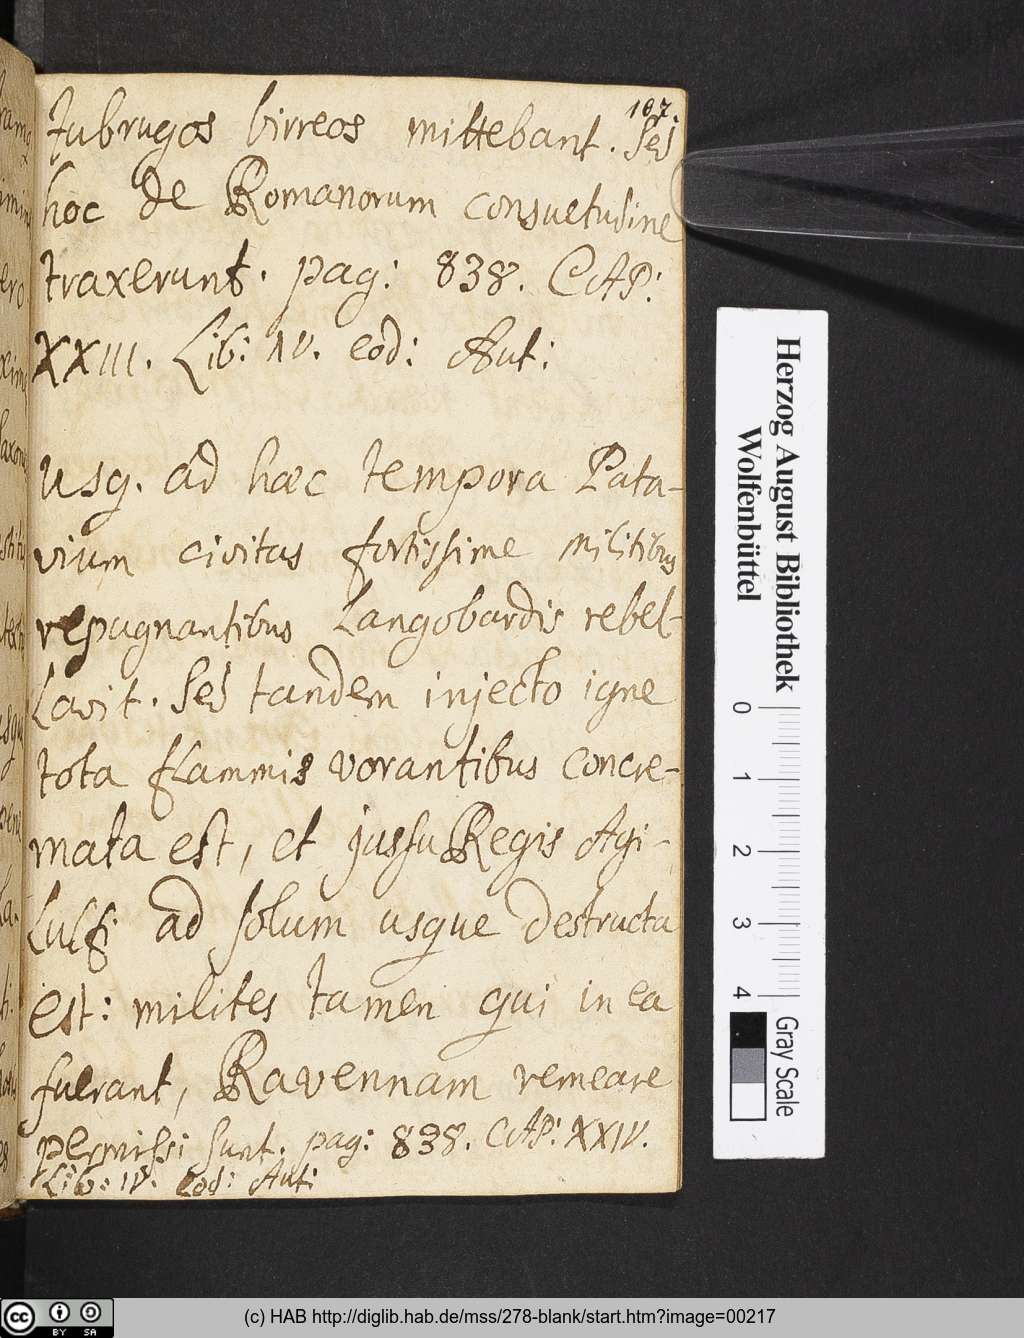 107.
tubrugos birreos mittebant. Sed
hoc de Romanorum consuetudine
traxerunt. pag: 838. CAP:
XXIII. Lib: IV. eod: Aut:
usq. ad hæc tempora Pata-
vium civitas fortissime militibus
repugnantibus Langobardis rebel-
lavit. Sed tandem injecto igne
tota flammis vorantibus concre-
mata est, et jussu Regis Agi-
lulfi ad solum usque destructa
est: milites tamen qui in ea
fuerant, Ravennam remeare
permissi sunt. pag: 838. CAP: XXIV.
Lib: IV. eod: Aut:
Herzog August Bibliothek
Wolfenbüttel
0 1 2 3 4
Gray Scale
cc BY SA
(c) HAB http://diglib.hab.de/mss/278-blank/start.htm?image=00217